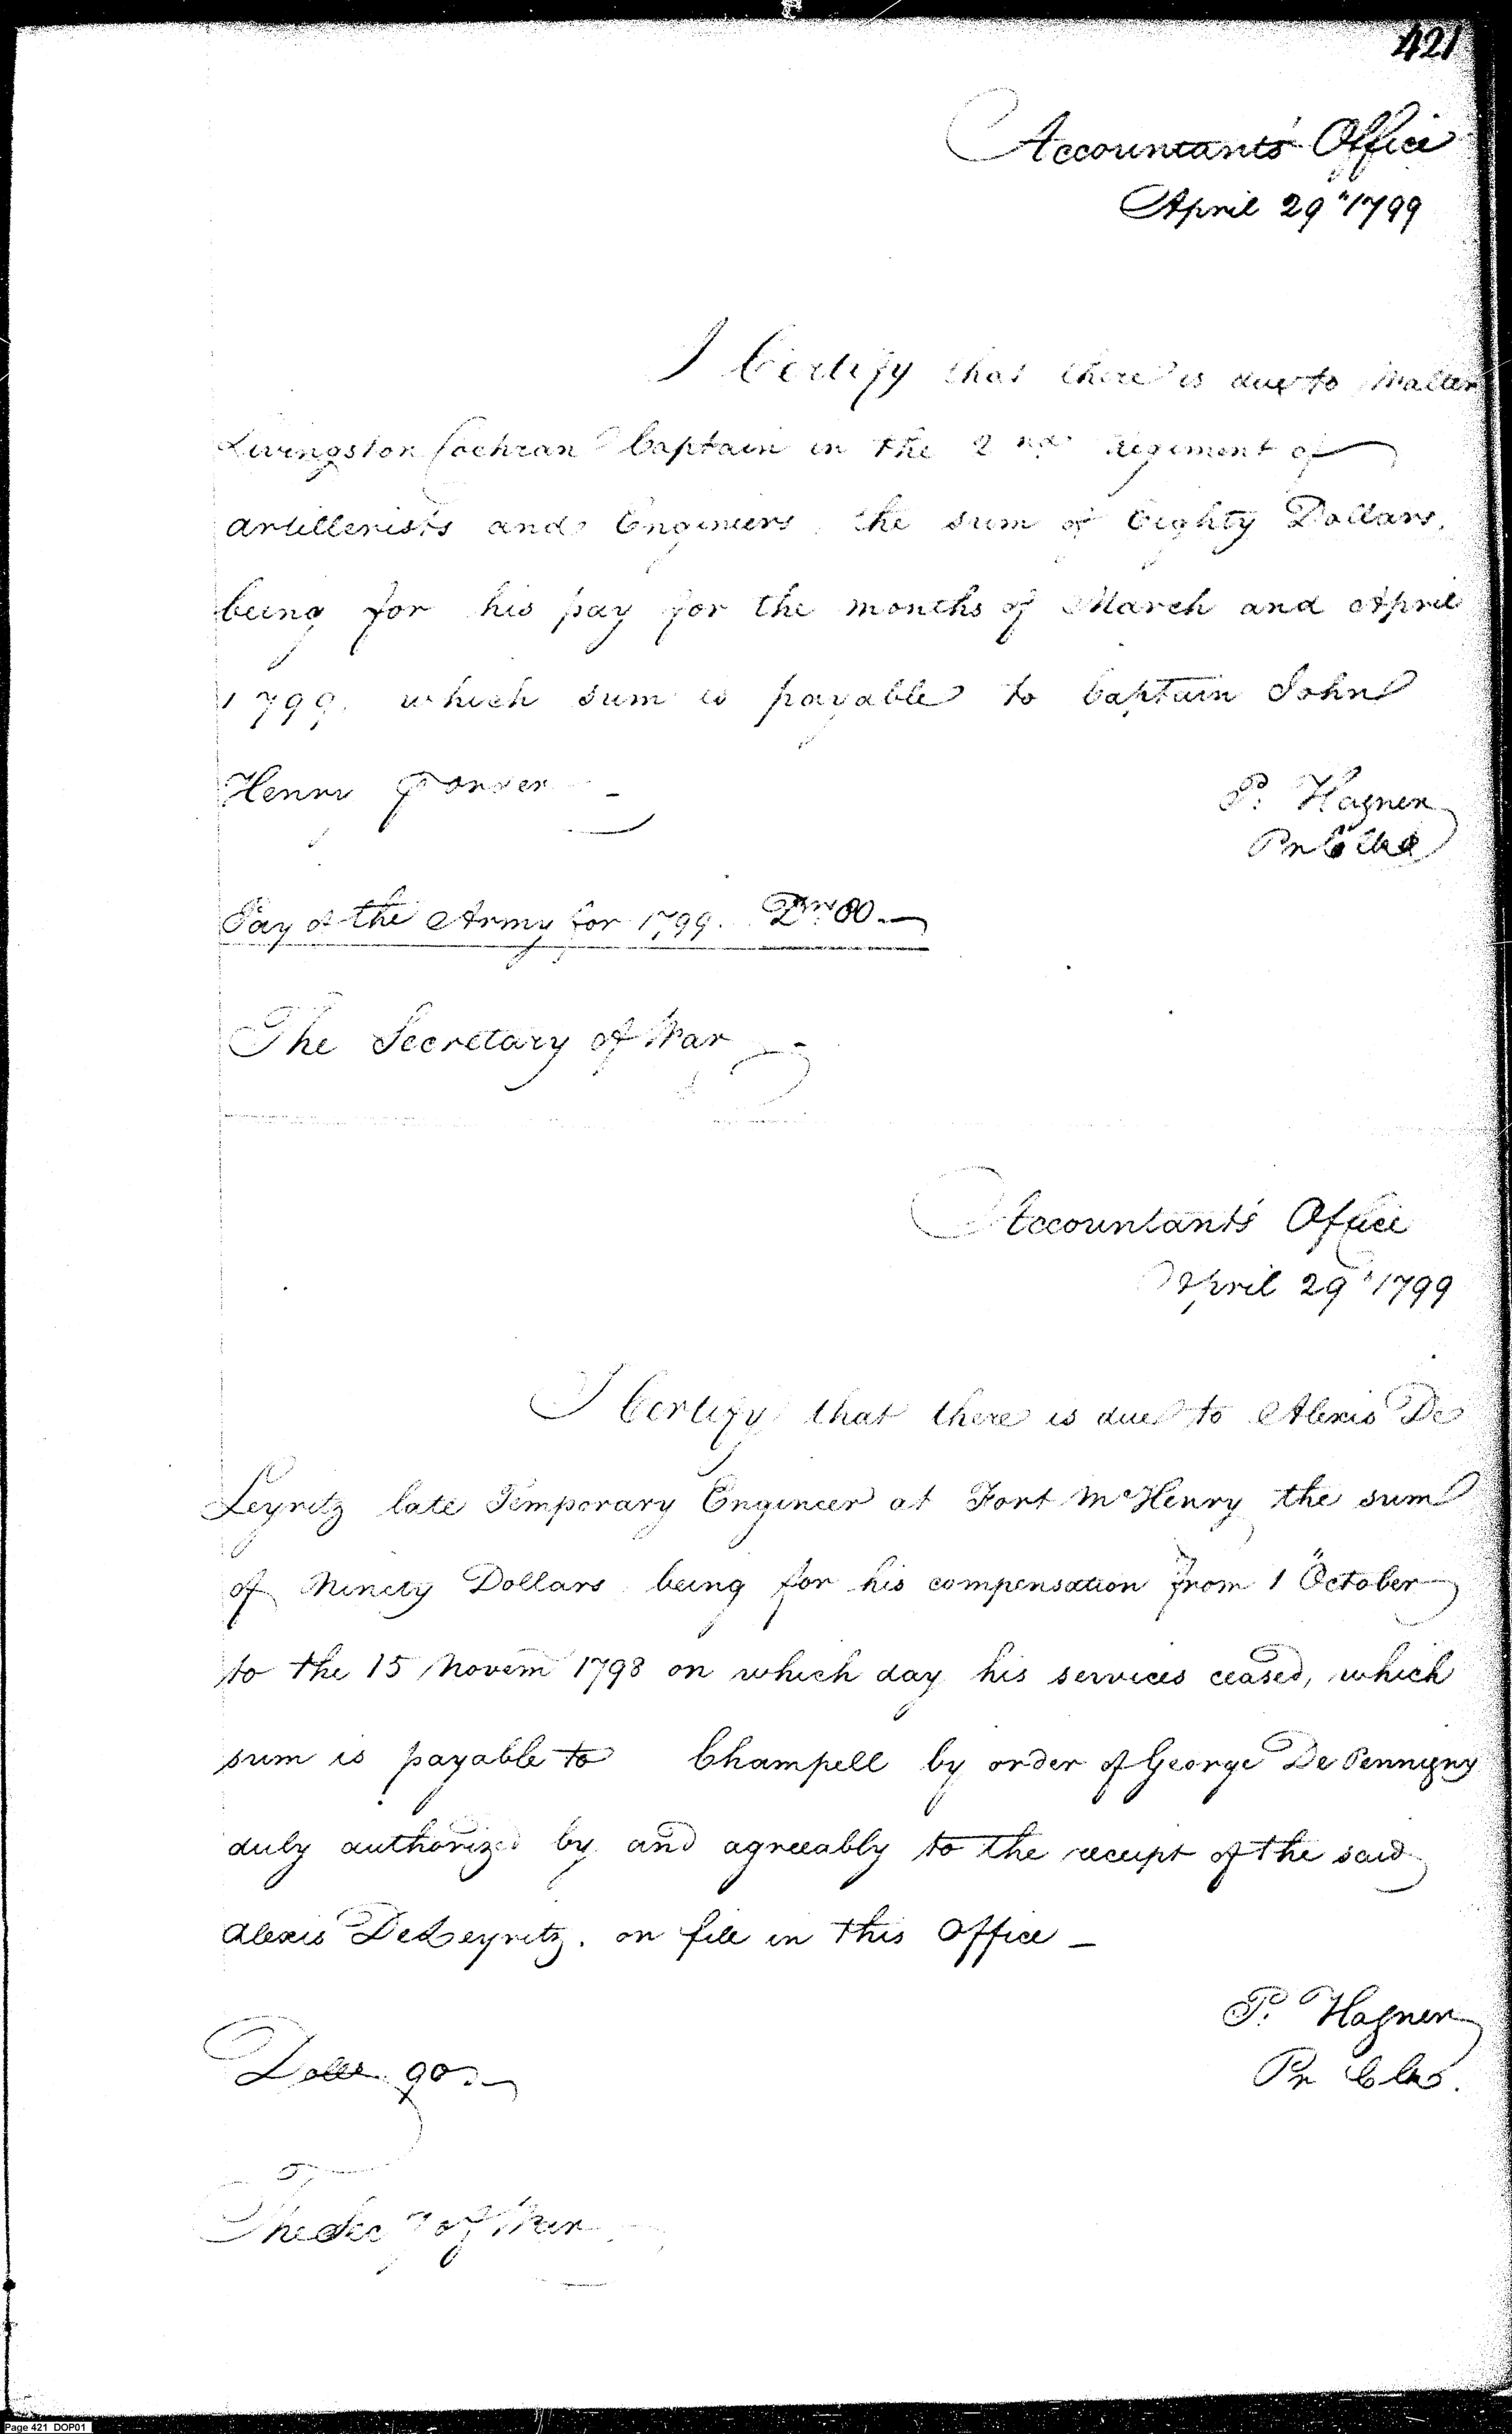 421
Accountants' Office
April 29" 1799
I Certify that there is due to Walter
Livingston Cochran Captain in the 2nd Regiment of
Artillerists and Engineers, the sum of Eighty Dollars,
being for his pay for the months of March and April
1799. which sum is payable to Captain John
Henry
P. Hagner
Pay of the Army for 1799. 80.—
The Secretary of War
Accountants' Office
April 29" 1799
I Certify that there is due to Alexis De
Leyritz late Temporary Engineer at Fort McHenry the sum
of Ninety Dollars being for his compensation from 1" October
to the 15 Novem 1798 on which day his services ceased, which
sum is payable to Champell by order of George De Pennigny
duly authorized by and agreeably to the receipt of the said
Alexis DeLeyritz. on file in this Office —
P. Hagner
Pr Clk.
Dolls. 90.—
The Secy of War
Page 421 DOP01